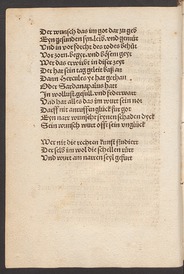 Der wunsch das im got dar zu geb
Eyn gesunden syn, leib, vnd gemüt
Vnd in vor forcht des todes behüt
Vor zorn, begyr, vnd bösem geyt
Wer das erwirbt in diser zeyt
Der hat sein tag geleit baß an
Dann Hercules ye hat gethan
Oder Sardanapalus hatt
In wollust, füll, vnd federwatt
Vnd hat alles das im wur sein not
Darff nit anrüffen glück für got
Eyn narr wünscht seynen schaden dyck
Sein wunsch wurt offt sein vnglück

Wer nit die rechten kunst studiert
Der selb im wol die schellen rürt
Vnd wurt am narren seyl gefürt